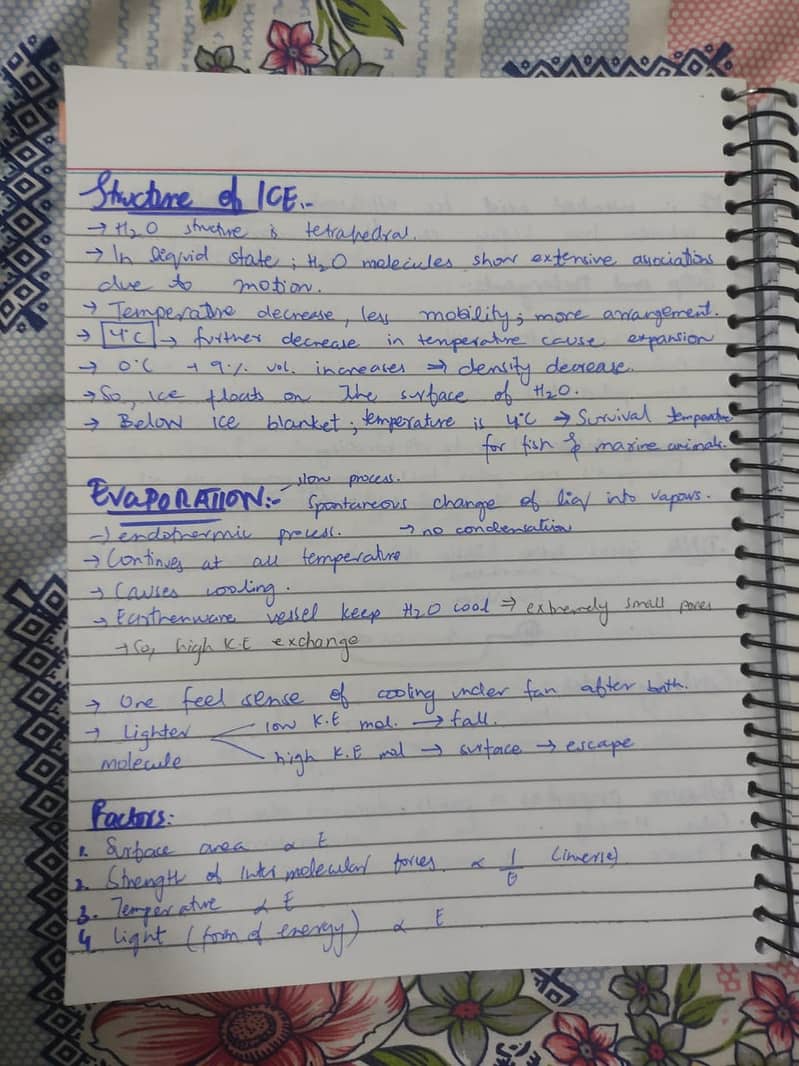 Structure of ICE:-
→ H2O structure is tetrahedral.
→ In liquid state ; H2O molecules show extensive associations
due to motion.
→ Temperature decrease, less mobility; more arrangement.
→ 4°C → further decrease in temperature cause expansion
→ 0°C → 9% vol. increases ⇒ density decrease.
→ So, ice floats on the surface of H2O.
→ Below ice blanket ; temperature is 4°C → Survival temperature
for fish & marine animals.
EVAPORATION:- slow process.
Spontaneous change of liq into vapours.
→ endothermic process. → no condensation
→ Continues at all temperature
→ Causes cooling.
→ Earthenware vessel keep H2O cool ⇒ extremely small pores
→ So, high K.E exchange
→ One feel sense of cooling under fan after bath.
→ Lighter low K.E mol. → fall.
molecule high K.E mol → surface → escape
Factors:
1. Surface area ∝ E
2. Strength of inter molecular forces. ∝ 1/E (inverse)
3. Temperature ∝ E
4 Light (form of energy) ∝ E